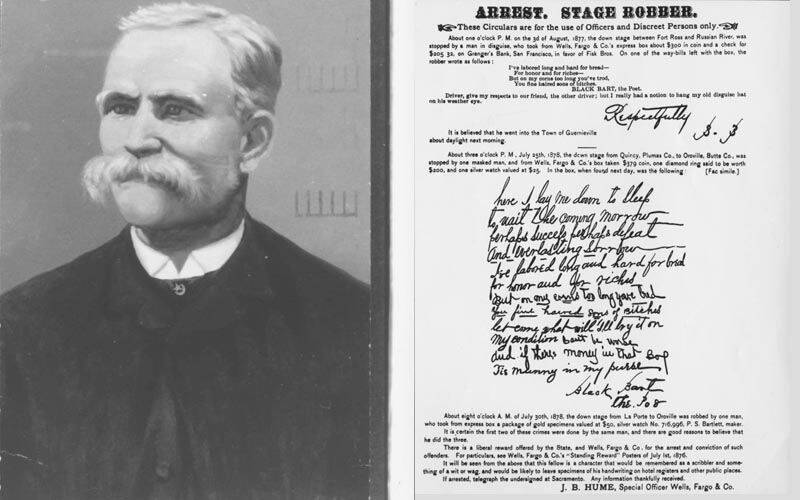 ARREST. STAGE ROBBER.
These Circulars are for the use of Officers and Discreet Persons only.
About one o'clock P. M. on the 3d of August, 1877, the down stage between Fort Ross and Russian River, was
stopped by a man in disguise, who took from Wells, Fargo & Co.'s express box about $300 in coin and a check for
$205 32, on Granger's Bank, San Francisco, in favor of Fisk Bros. On one of the way-bills left with the box, the
robber wrote as follows:
I've labored long and hard for bread—
For honor and for riches—
But on my corns too long you've trod,
You fine haired sons of bitches.
BLACK BART, the Poet.
Driver, give my respects to our friend, the other driver; but I really had a notion to hang my old disguise hat
on his weather eye.
Respectfully B. B
It is believed that he went into the Town of Guernieville
about daylight next morning.
About three o'clock P. M., July 25th, 1878, the down stage from Quincy, Plumas Co., to Oroville, Butte Co., was
stopped by one masked man, and from Wells, Fargo & Co.'s box taken $379 coin, one diamond ring said to be worth
$200, and one silver watch valued at $25. In the box, when found next day, was the following: [Fac simile.]
here I lay me down to sleep
to wait the coming morrow
perhaps success perhaps defeat
and everlasting sorrow
I've labored long and hard for bred
for honor and for riches
But on my corns too long youve tred
You fine haired sons of Bitches
let come what will I'll try it on
My condition cant be worse
and if theres money in that Box
Tis munny in my purse
Black Bart
the Po8
About eight o'clock A. M. of July 30th, 1878, the down stage from La Porte to Oroville was robbed by one man,
who took from express box a package of gold specimens valued at $50, silver watch No. 716,996, P. S. Bartlett, maker.
It is certain the first two of these crimes were done by the same man, and there are good reasons to believe that
he did the three.
There is a liberal reward offered by the State, and Wells, Fargo & Co. for the arrest and conviction of such
offenders. For particulars, see Wells, Fargo & Co.'s "Standing Reward" Posters of July 1st, 1876.
It will be seen from the above that this fellow is a character that would be remembered as a scribbler and some-
thing of a wit or wag, and would be likely to leave specimens of his handwriting on hotel registers and other public places.
If arrested, telegraph the undersigned at Sacramento. Any information thankfully received.
J. B. HUME, Special Officer Wells, Fargo & Co.